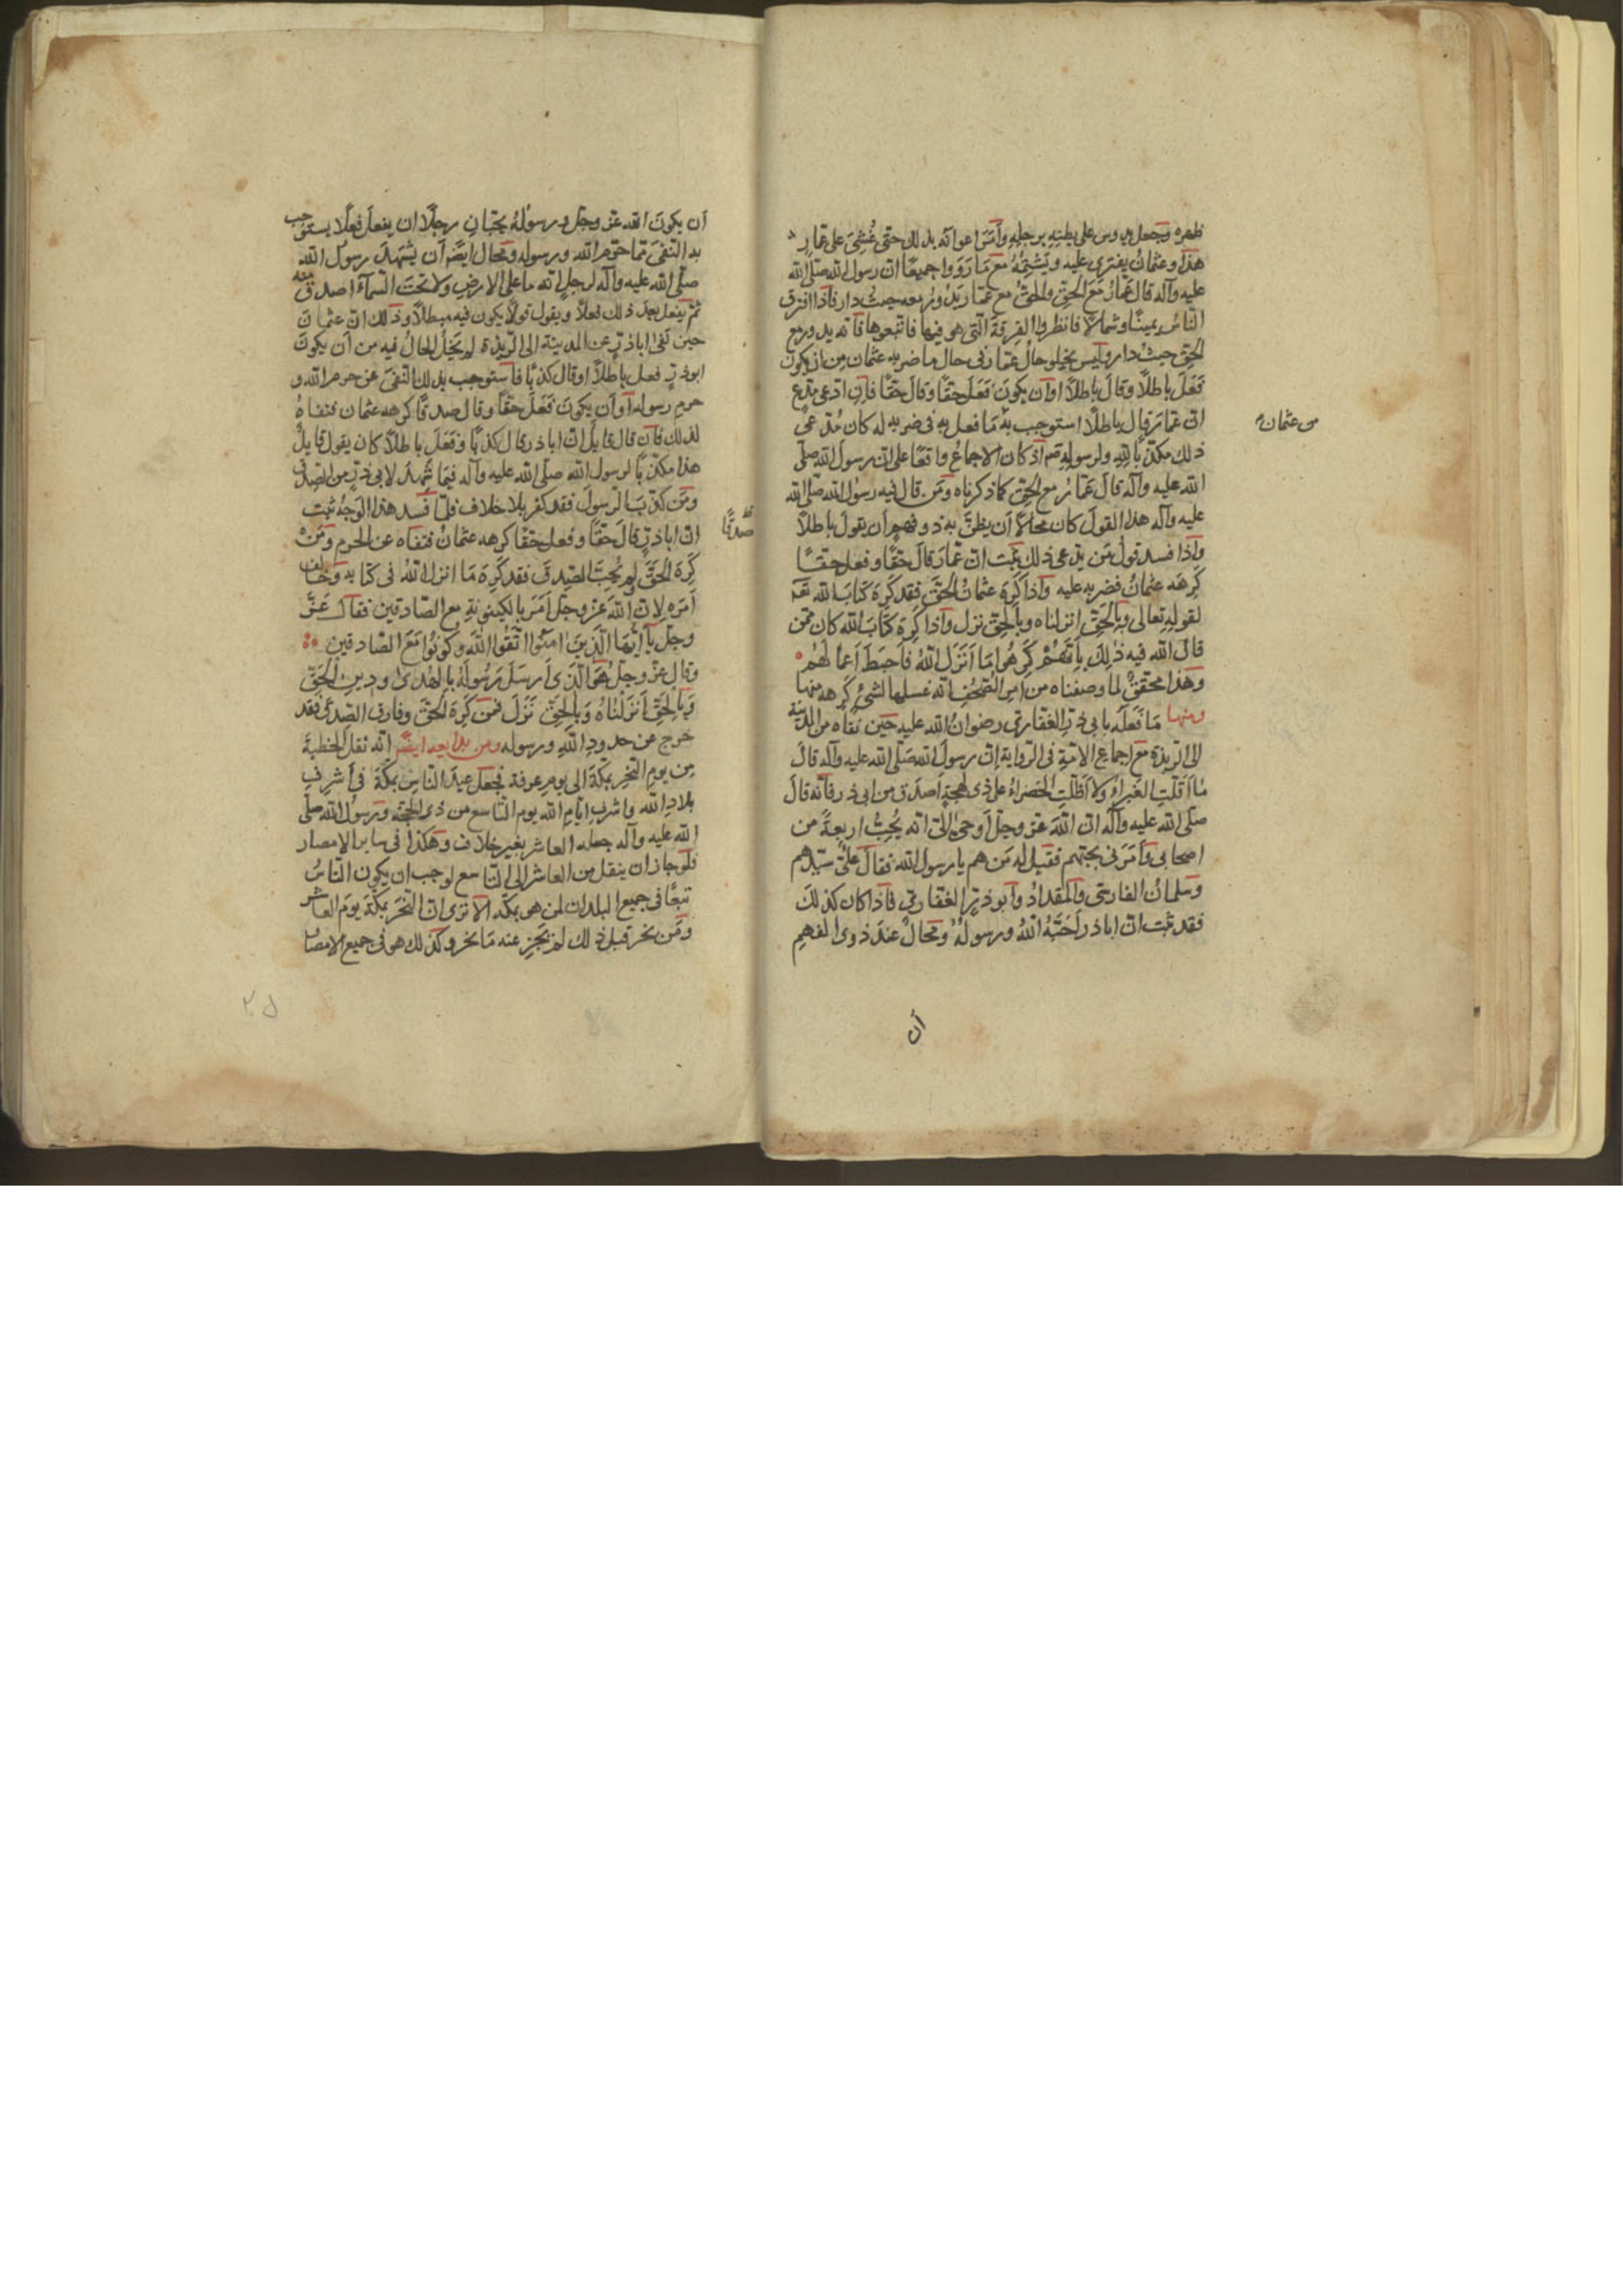 ظهره وجعل يدوس على بطنه برجله وأمر أعوانه بذلك حتى غُشِيَ على عمار
هذا وعثمان يفترى عليه ويشتمه مع مَا رَوَوا جميعًا ان رسول الله صلّى الله
عليه وآله قال عَمّارُ مَعَ الحقِّ والحقُّ مع عمّار يدور معه حيثُ دار فاذا افترق
النّاسُ يمينًا وشمالاً فانظروا الفِرقةَ الّتى هو فيها فاتبعوها فانّه يدور مع
الحقّ حيث دار وليس يخلو حالُ عمّار فى حال ما ضربه عثمان مِن ان يكون
فَعَلَ باطلاً وقالَ باطلاً اوأن يكونَ فَعَلَ حقًّا وقالَ حقًّا فإن ادعى مدّع
انّ عمّارَ قال باطلاً استوجب به مَا فعل به فى ضربه له كان مُدّعى
ذلك مكذّبًا لله ولرسوله اذ كان الاجماعُ واقعًا على انّ رسولَ الله صلّى
الله عليه وآله قالَ عَمّارُ مع الحقّ كما ذكرناه ومَن قال فيه رسُول الله صلّى الله
عليه وآله هذا القولَ كان محالاً أن يظنَّ به ذو فهم أن يقولَ باطلاً
واذا فسد قولُ مَن يدّعى ذلك ثَبتَ انّ عمّارَ قالَ حقًّا وفعل حقًّا
كَرِهَه عثمانُ فضربه عليه واذا كَرِهَ عثمانُ الحقَّ فقد كَرِهَ كتابَ الله
لقولهِ تعالى وبالحَقِّ انزلناه وبالحقِّ نزل واذا كَرِهَ كتابَ الله كان ممّن
قالَ الله فيه ذلِكَ بِأنّهُمْ كَرِهُوا مَا أنزَلَ اللهُ فَاَحبَطَ أعمالَهُمْ
وهذا محققٌ لما وصفناه من امرِ الصّحُفِ انّه غسلها لشئ كَرِهه منها
ومنها مَا فَعَلَه بابى ذرّ الغفّارىّ رضوانُ الله عليه حين نفاه من المدينة
الى الرّبذة مع اجماعِ الامّةِ فى الرّواية انّ رسولَ الله صَلّى الله عليه وآله قالَ
مَا أقلّتِ الغَبراءُ ولا أظلّتِ الخضراءُ على ذى لهجةٍ أصدق من ابى ذر فانّه قالَ
صلّى الله عليه وآله انّ اللهَ عزّ وجلّ أوحىٰ إلىّ انّه يُحِبُّ اربعةً من
اصحابى وأمَرَنى بحبّهم فقيل له مَن هم يا رسولَ الله فقالَ علىّ سيّدهم
وسلمانُ الفارسىّ والمقدادُ وأبوذرّ الغفّارىّ فاذا كان كذلكَ
فقد ثبت انّ اباذر أحَبّهُ اللهُ ورسولُهُ ومحالٌ عندَ ذوى الفهمِ
من عثمان
أن
أن يكونَ الله عزّ وجلّ ورسولهُ يحبّانِ رجلاً ان يفعلَ فعلًا يستوجب
به النّفىَ عمّا حرّم الله ورسوله ومحال ايضًا أن يشهدَ رسولُ الله
صلّى الله عليه وآله لرجلٍ انّه ما على الارضِ ولا تحتَ السّمآءِ اصدق منه
ثمّ يفعل بعدَ ذلك فعلاً ويقول قولاً يكون فيه مبطلاً وذلك انّ عثمان
حين نفىٰ اباذرّ عن المدينة الى الرّبذة لم يَخلُ الحالُ فيه من أن يكونَ
ابوذرّ فعل باطلاً اوقال كذبًا فاستوجب بذلك النّفىَ عن حرم الله و
حرمِ رسوله أوأن يكونَ فَعَلَ حقًّا وقال صدقًا كرهه عثمان فنفاهُ
لذلك فان قال قايلٌ انّ اباذر قال كذبًا وفَعَلَ باطلاً كان يقول قايل
هذا مكذّبًا لرسول الله صلّى الله عليه وآله فيمَا شهدَ لابى ذرٍّ من الصّدق
ومَن كذّبَ الرّسولَ فقد كفر بلا خلاف فلمّا فَسد هذا الوَجهُ ثبت
انّ اباذرّ قالَ حقًّا وفعل حقًّا كرهه عثمانُ فنفاه عن الحرمِ ومَنْ
صدقًا
كَرِهَ الحَقَّ ولم يُحِبَّ الصّدقَ فقد كَرِهَ مَا انزل اللهُ فى كتابه وخالف
أمرَه لانّ اللهَ عزّ وجلّ أمَرَ بالكينونةِ مع الصّادقين فقالَ عَزَّ
وجلّ يآأيّهَا الّذينَ امَنُوا اتّقُوا اللهَ وكُونُوا مَعَ الصّادقين
وقال عزّ وجلّ هُوَ الّذى أرسَلَ رَسُولَهُ بالهُدىٰ ودينِ الحَقّ
وَبِالحَقِّ أنزَلنَاهُ وَبِالحَقِّ نَزَلَ فمن كَرِهَ الحقَّ وفارق الصّدقَ فقد
خرج عن حدودِ اللهِ ورسوله ومن بدايعه ايضًا انّه نقل الخطبةَ
مِن يومِ النّحرِ بمكّة الى يومِ عرفة فجعل عيدَ النّاسِ بمكّةَ فى أشرفِ
بلادِ الله واشرفِ ايّامِ الله يوم التّاسع من ذى الحجّة ورسُول الله صلّى
الله عليه وآله جعله العاشر بغير خلاف وهكذا فى ساير الامصار
فلو جاز ان ينقل من العاشر الى التّاسع لوجب ان يكون النّاسُ
تبعًا فى جميع البلدان لمن هو بمكّه ألا ترى انّ النّحرَ بمكّة يومَ العاشر
ومَن نحر قبل ذلك لم يَجُز عنه مَا نحر وكذلك هو فى جميع الامصار